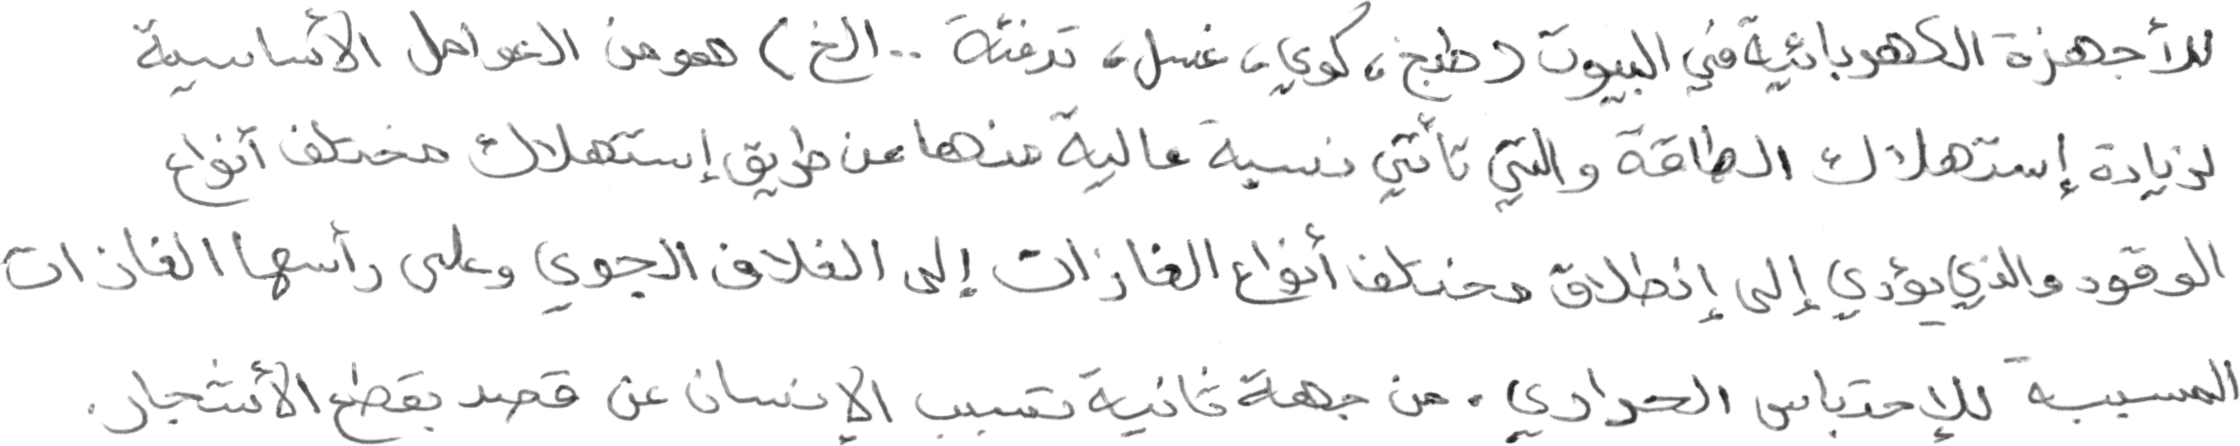 للأجهزة الكهربائية في البيوت (طبخ، كوي، غسل، تدفئة ..الخ) هو من العوامل الأساسية
لزيادة إستهلاك الطاقة والتي تأتي نسبة عالية منها عن طريق إستهلاك مختلف أنواع
الوقود والذي يؤدي إلى إنطلاق مختلف أنواع الغازات إلى الغلاف الجوي وعلى رأسها الغازات
المسببة للإحتباس الحراري. من جهة ثانية تسبب الإنسان عن قصد بقطع الأشجار.